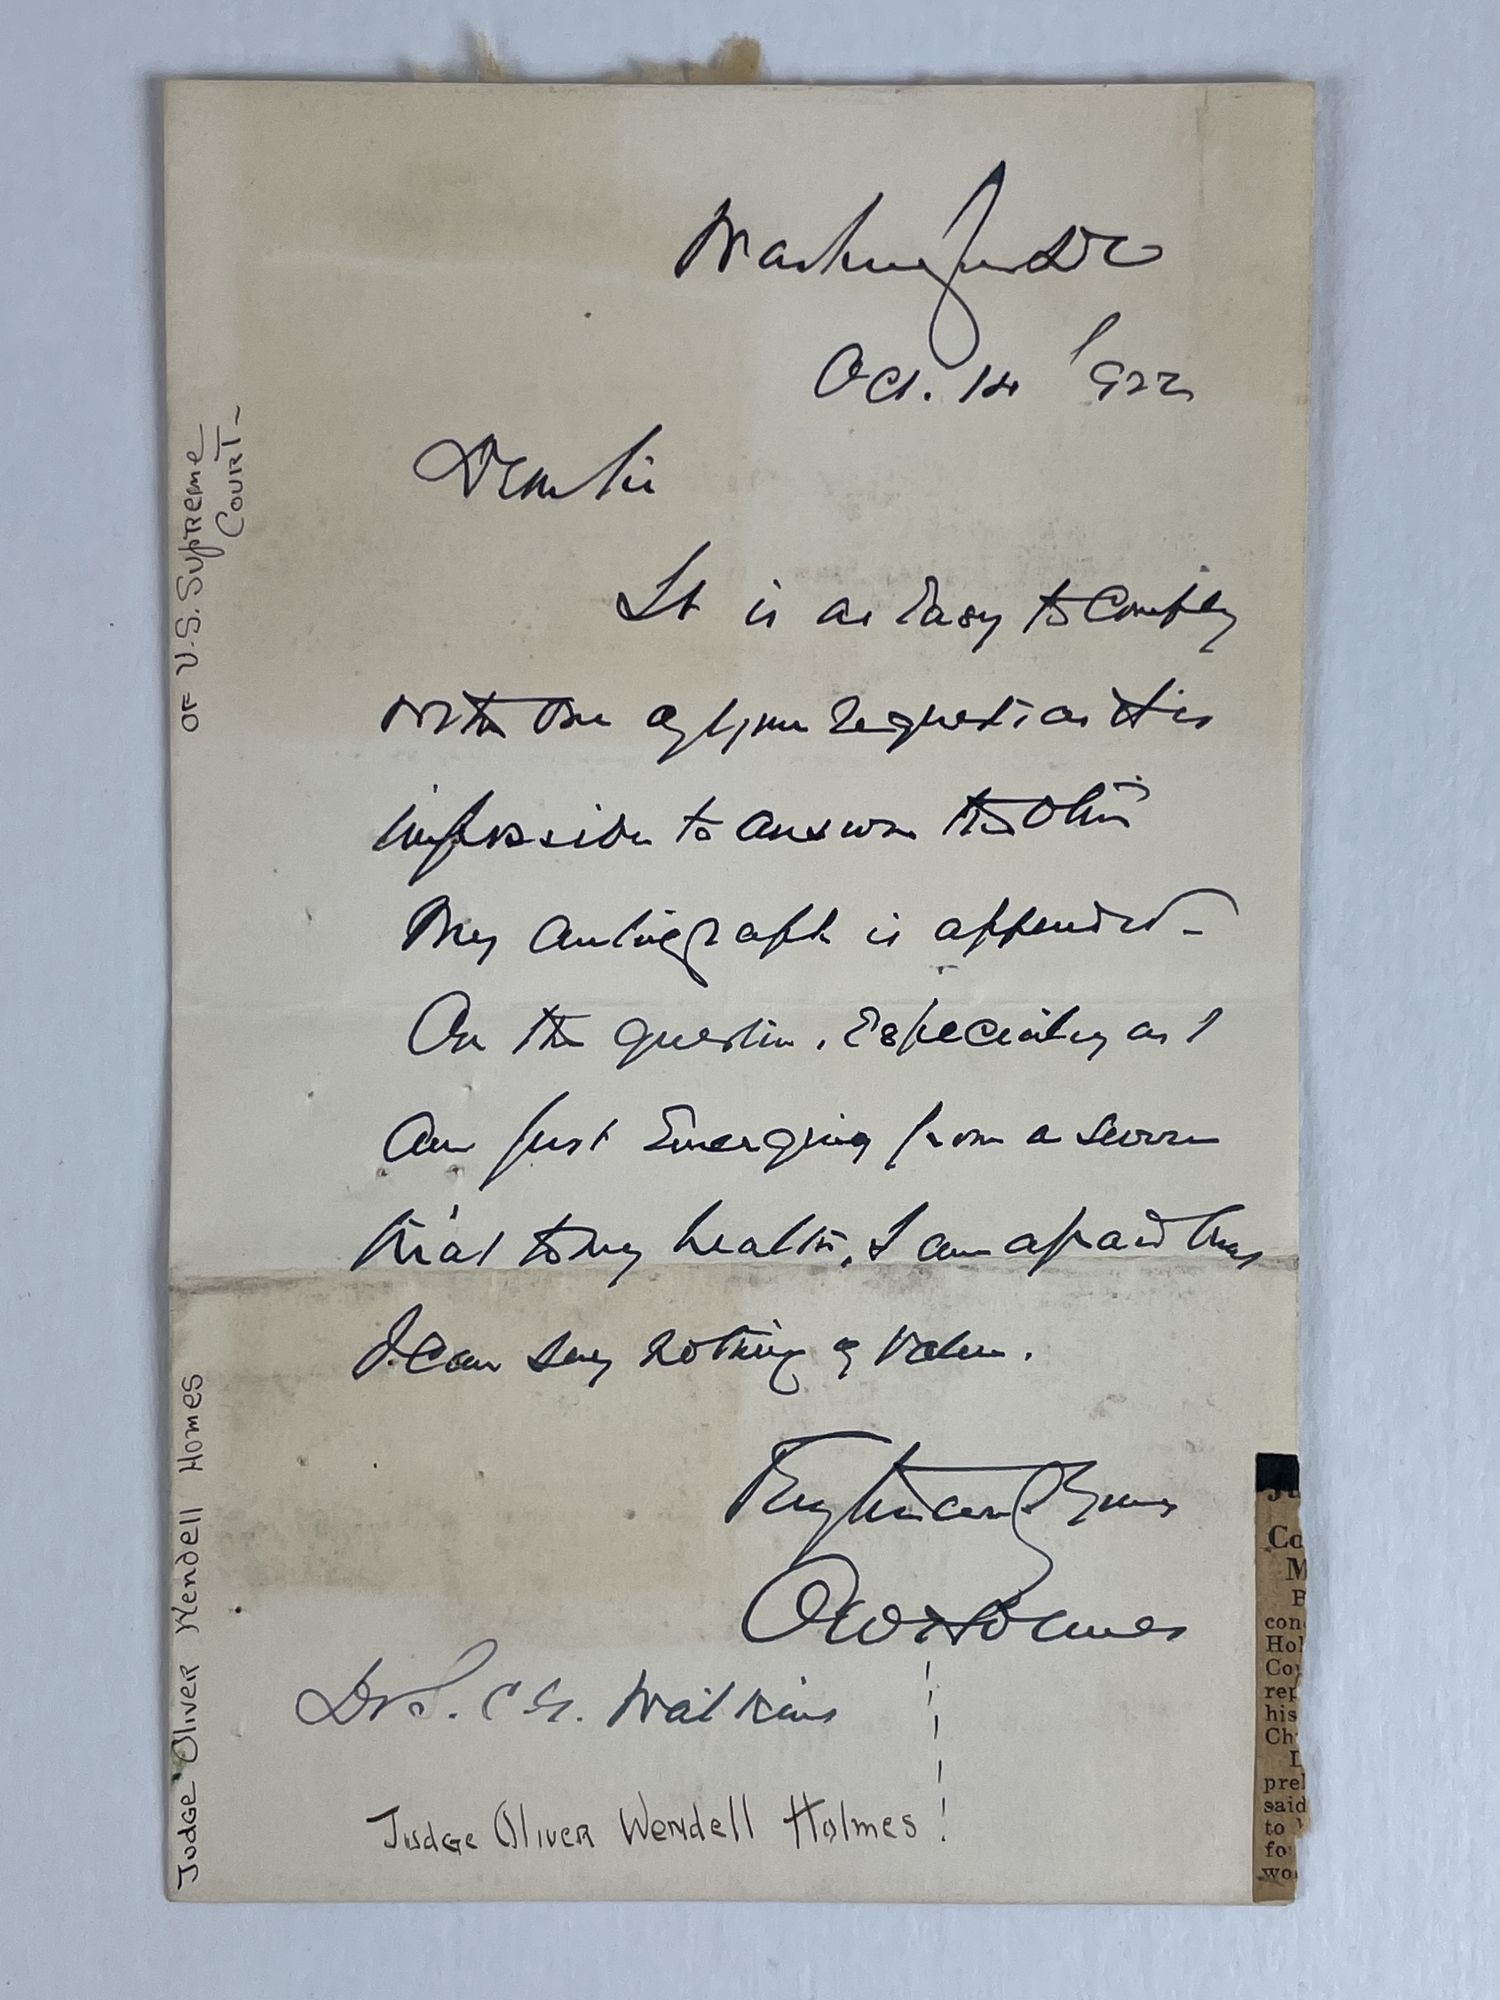 Washington DC
Oct. 14 1922
Dear Sir
It is as easy to comply
with one of your requests as it is
impossible to answer the other
My autograph is appended -
On the question, especially as I
am just emerging from a severe
trial to my health, I am afraid that
I can say nothing of value.
Very truly yours
O W Holmes
Dr S. C G. Watkins
Judge Oliver Wendell Holmes!
Judge Oliver Wendell Homes
of U.S. Supreme
Court -
Co
M
B
con
Hol
Co
rep
his
Ch
prel
said
to
fo
wo